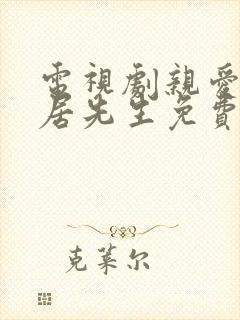 電視劇親愛
居先生免費
克萊尔